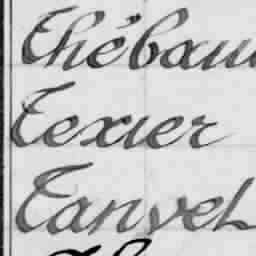 Thébau
Texier
Tanvet